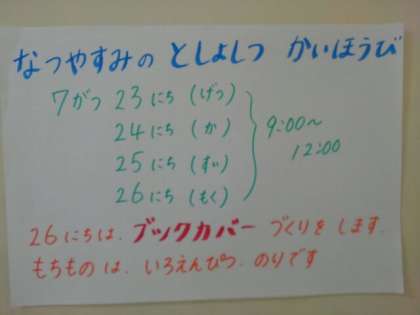 なつやすみの としょしつ かいほうび
7がつ 23にち (げつ)
24にち (か)
25にち (すい)
26にち (もく)
9:00～
12:00
26にちは、ブックカバー づくりを します.
もちものは、いろえんぴつ、のりです